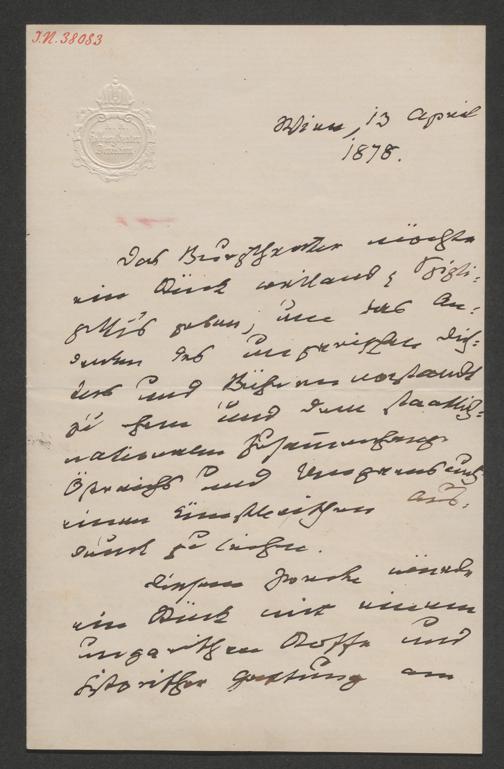 I.N. 38083
Wien, 13 April
1878.
Das Burgtheater möchte
ein Stück weiland Szigli-
getis geben, um das An-
denken des ungarischen Dich-
ters und Bühnenvorstands
zu ehren und dem staatlich-
nationalen Zusammenhang
Östreichs und Ungarns auch
einen künstlerischen Aus-
druck zu leihen.
Diesem Zwecke würde
ein Stück mit einem
ungarischen Stoffe und
historischer Haltung am